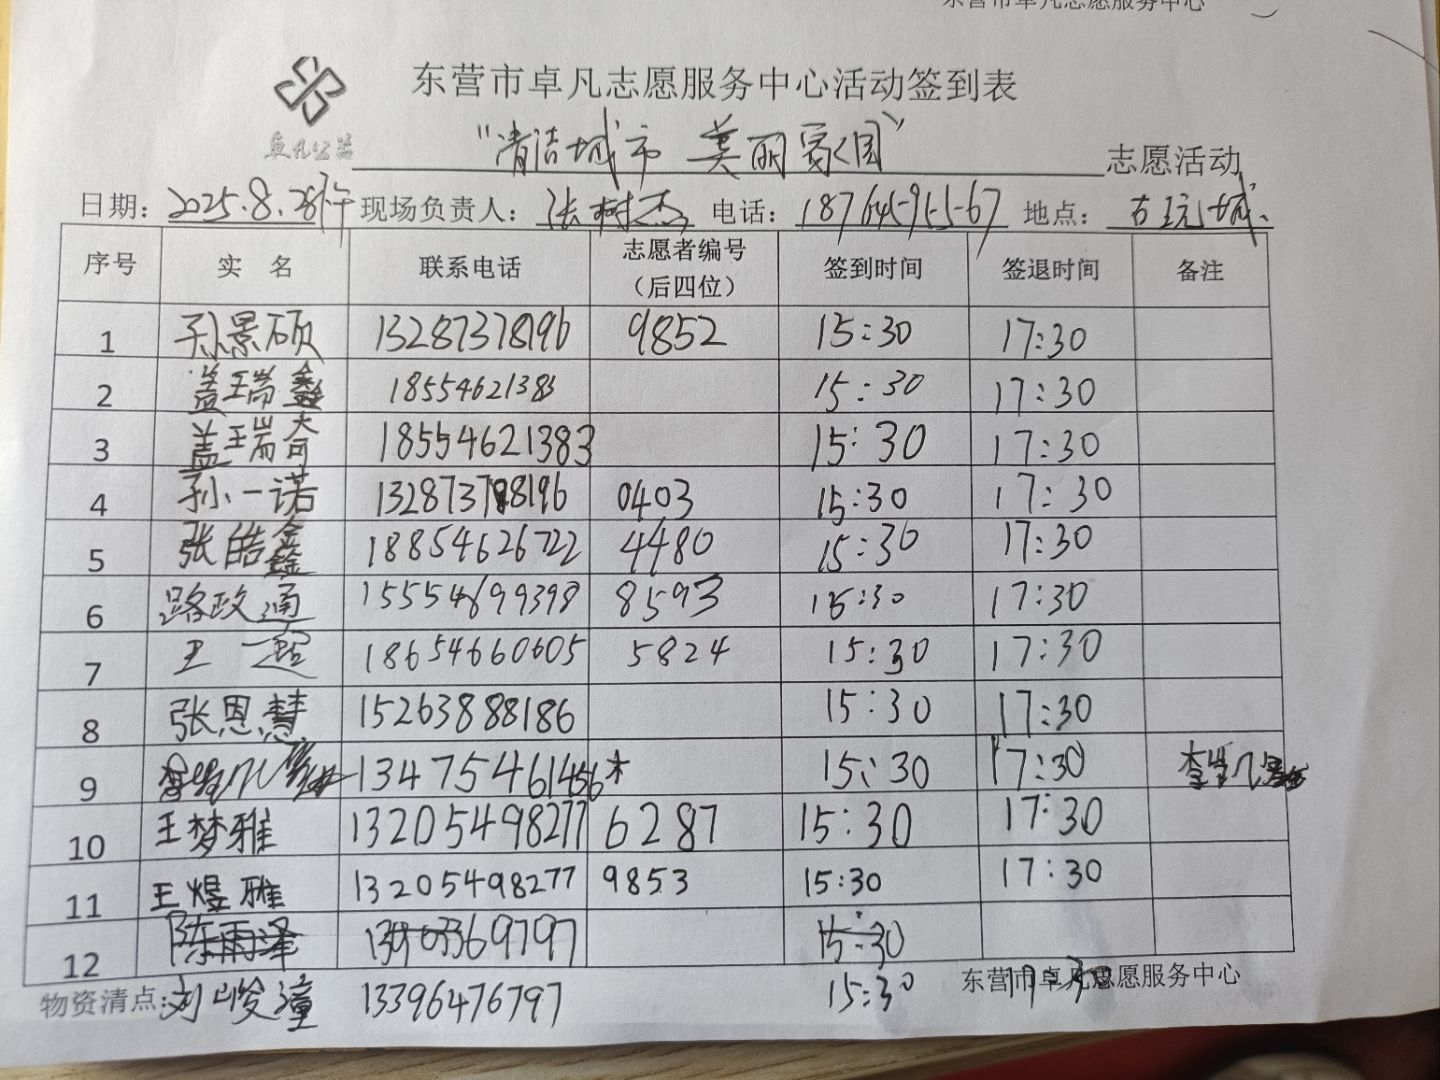 东营市卓凡志愿服务中心
东营市卓凡志愿服务中心活动签到表
卓凡公益 “清洁城市 美丽家园” 志愿活动
日期：2025.8.28下午 现场负责人：张树杰 电话：18764591567 地点：古玩城
序号 实 名 联系电话 志愿者编号（后四位） 签到时间 签退时间 备注
1 孙景硕 13287378196 9852 15:30 17:30
2 盖瑞鑫 18554621383 15:30 17:30
3 盖瑞奇 18554621383 15:30 17:30
4 孙一诺 13287378196 0403 15:30 17:30
5 张皓鑫 18854626722 4480 15:30 17:30
6 路政通 15554699398 8593 15:30 17:30
7 王超 18654660605 5824 15:30 17:30
8 张恩慧 15263888186 15:30 17:30
9 15:30 17:30
10 王梦雅 13205498277 6287 15:30 17:30
11 王煜雅 13205498277 9853 15:30 17:30
12 陈雨泽 15:30
物资清点：刘峻潼 13396476797 15:30 17:30 东营市卓凡志愿服务中心